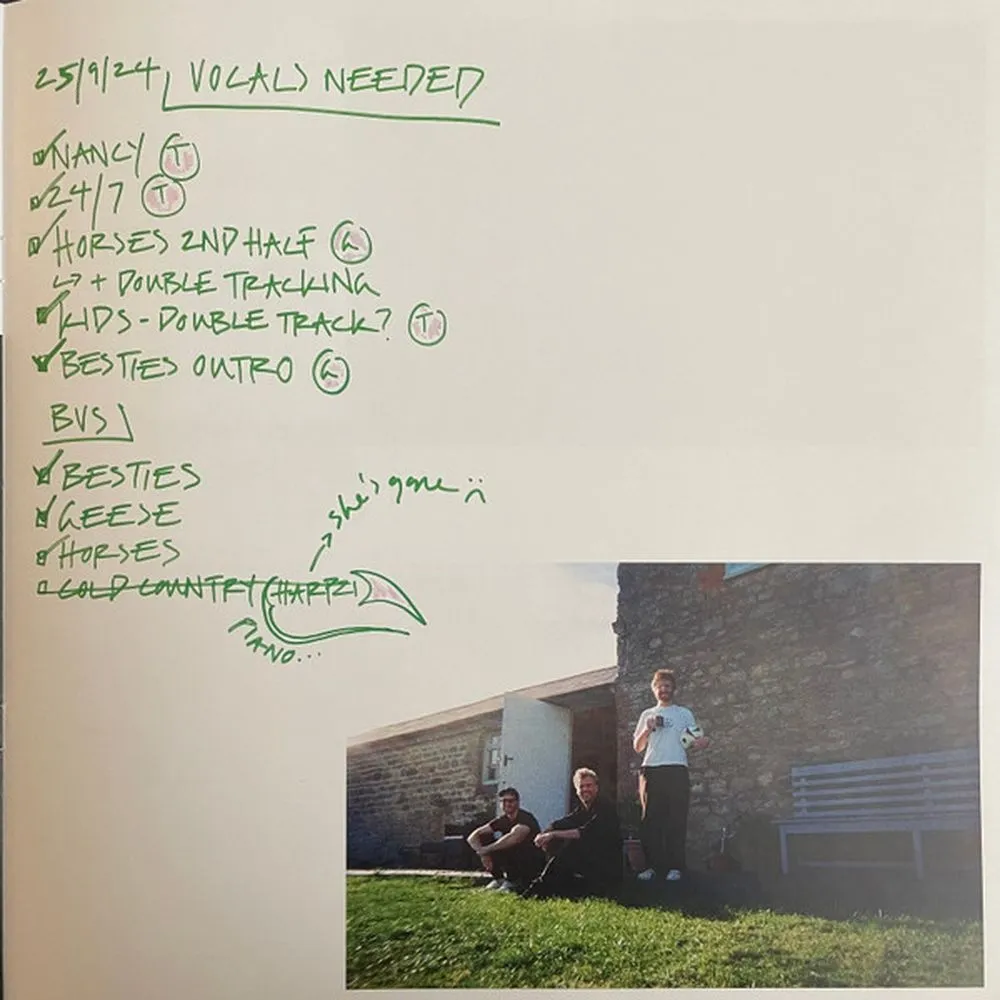 25/9/24 VOCALS NEEDED
NANCY T
24/7 T
HORSES 2ND HALF G
↳ + DOUBLE TRACKING
KIDS - DOUBLE TRACK? T
BESTIES OUTRO G
BVS
BESTIES
GEESE
HORSES
she's gone :(
GOLD COUNTRY (HARPZ)
PIANO...